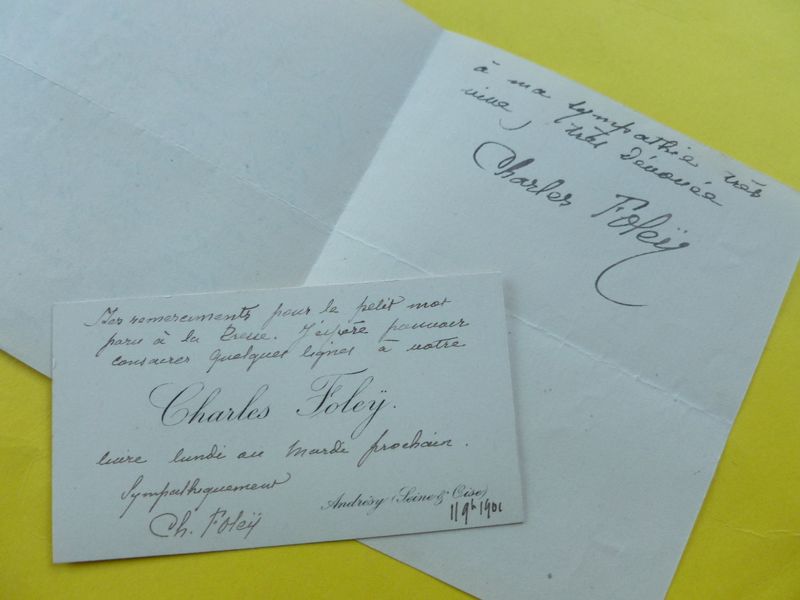 à ma sympathie très
vive, très dévouée
Charles Foleÿ
Mes remerciments pour le petit mot
paru à la Revue. J'espère pouvoir
consacrer quelques lignes à votre
Charles Foleÿ.
livre lundi ou Mardi prochain.
Sympathiquement
Andrésy (Seine & Oise)
Ch. Foleÿ